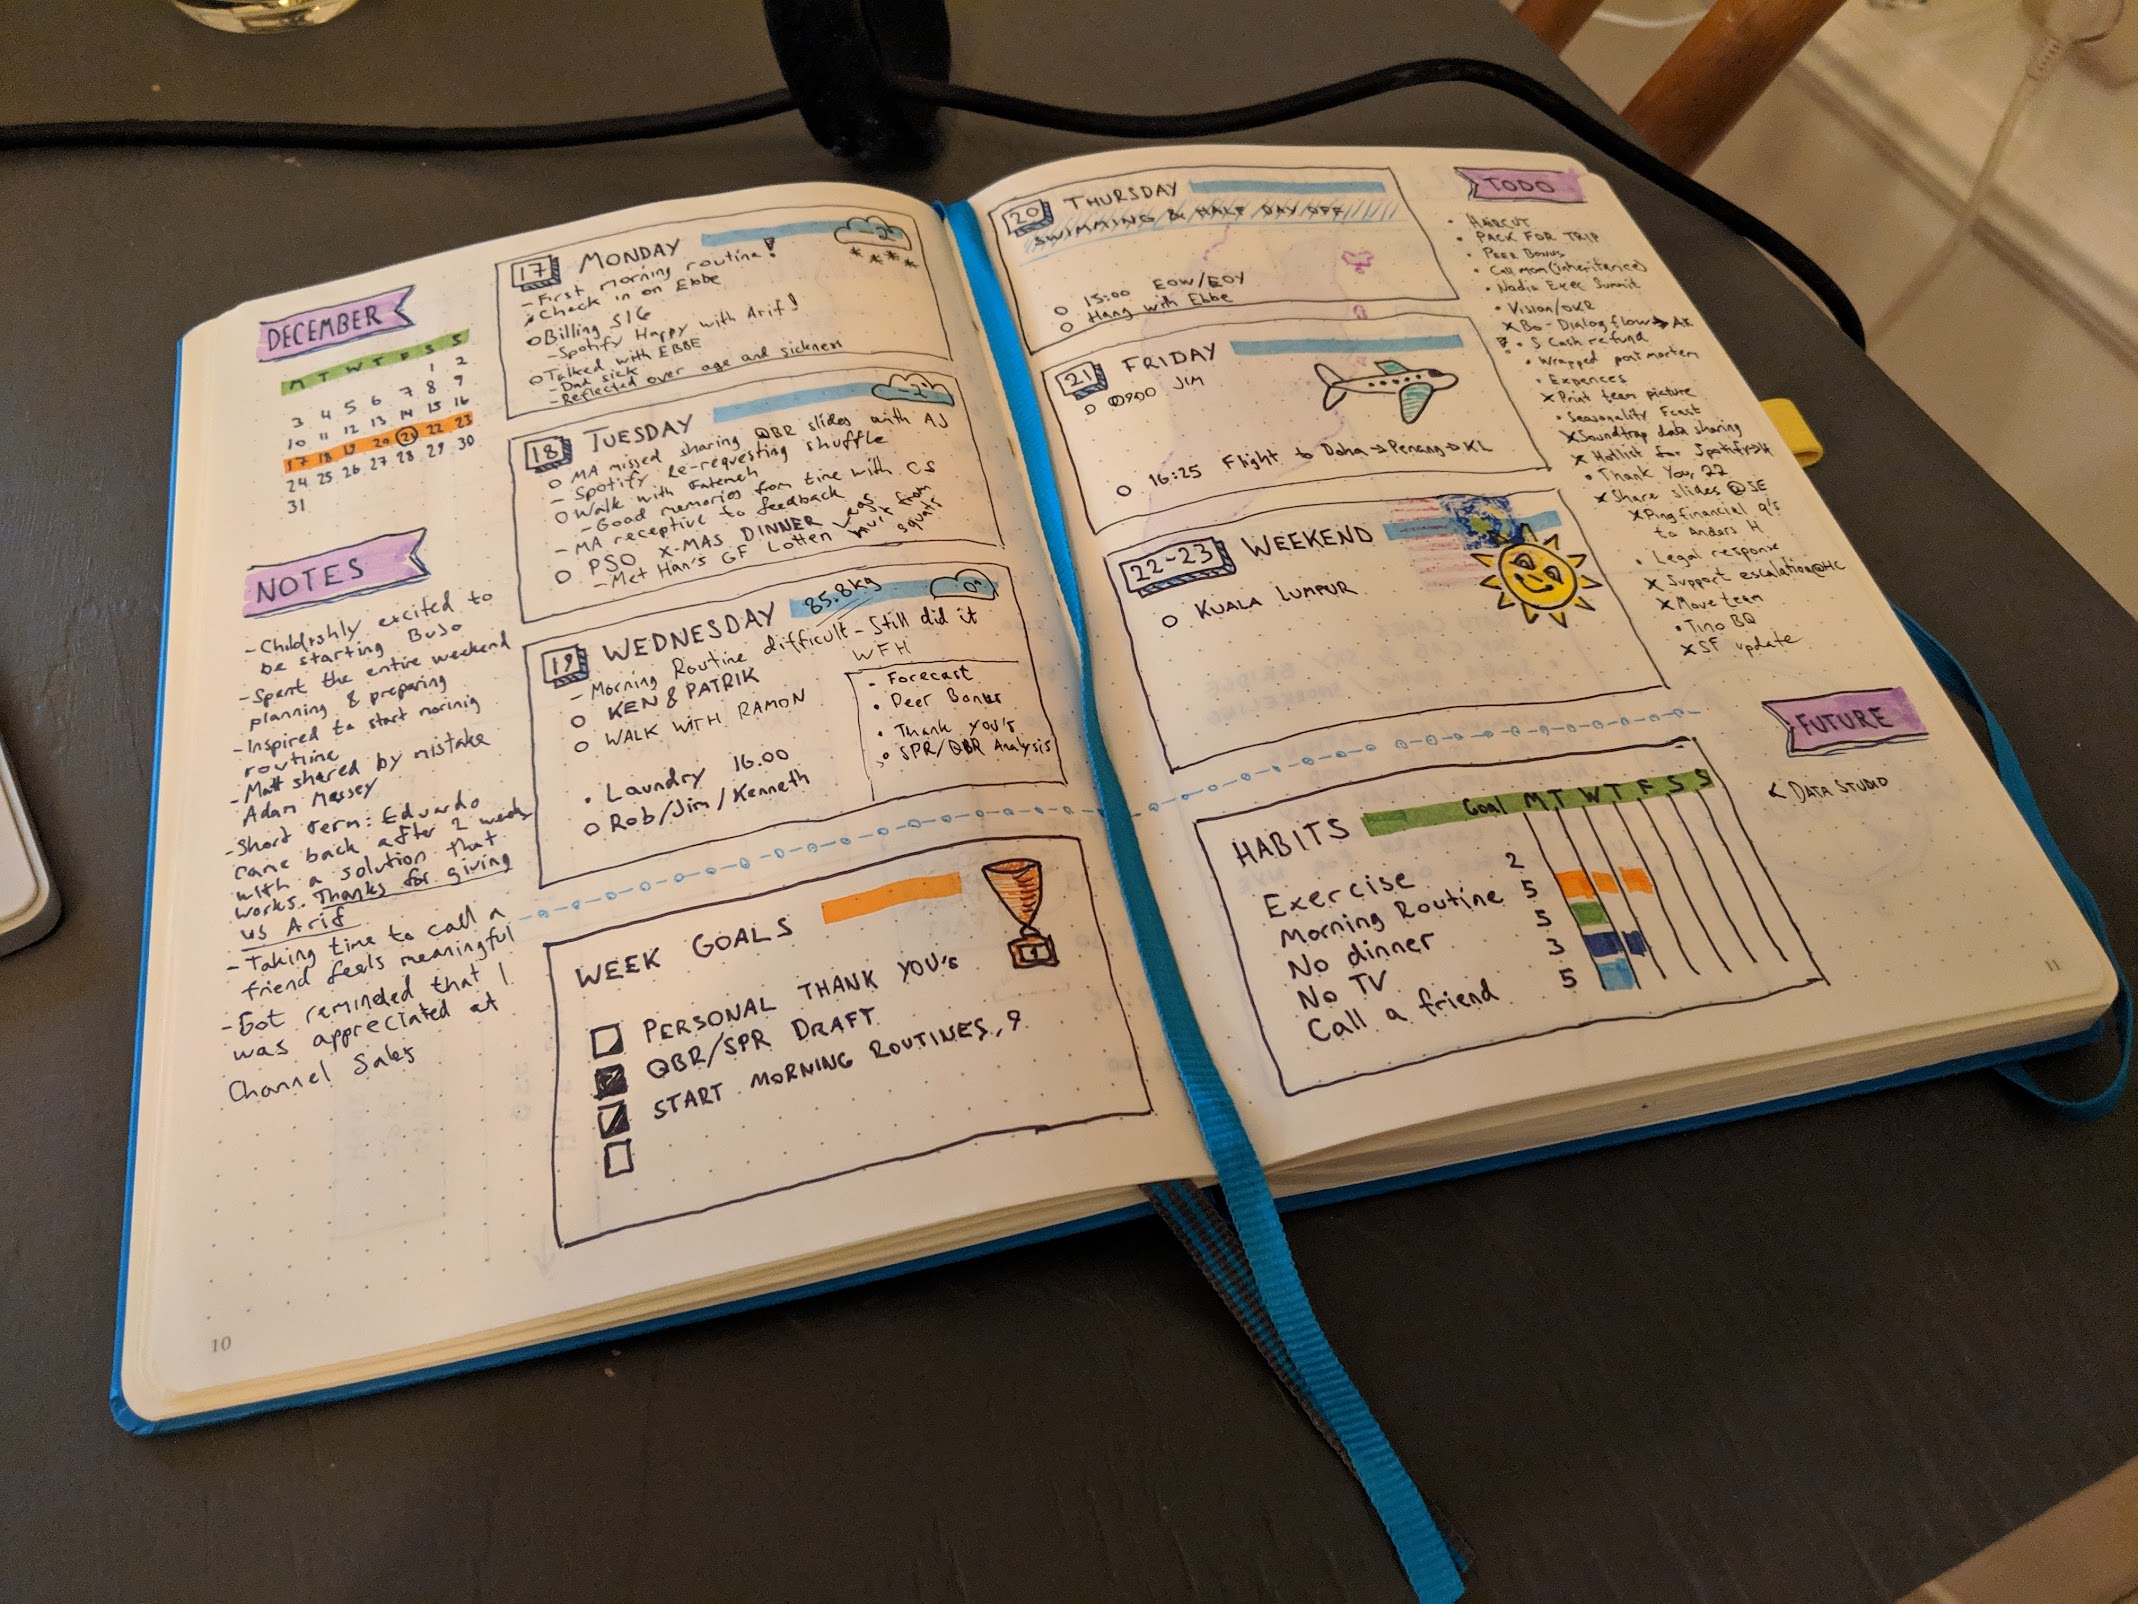 DECEMBER
M T W T F S S
1 2
3 4 5 6 7 8 9
10 11 12 13 14 15 16
17 18 19 20 21 22 23
24 25 26 27 28 29 30
31
NOTES
- Childishly excited to
be starting BuJo
- Spent the entire weekend
planning & preparing
- Inspired to start mornig
routine
- Matt shared by mistake
Adam Massey
- Short term: Eduardo
came back after 2 weeks
with a solution that
works. Thanks for giving
us Arif
- Taking time to call a
friend feels meaningful
- Got reminded that I
was appreciated at
Channel Sales
10
17 MONDAY -2°
- First morning routine!
Check in on Ebbe
Billing SIG
- Spotify Happy with Arif!
Talked with EBBE
- Dad sick
- Reflected over age and sickness
18 TUESDAY -2°
MA missed sharing QBR slides with AJ
- Spotify re-requesting shuffle
Walk with Fatemeh
- Good memories from time with CS
- MA receptive to feedback
PSO X-MAS DINNER
- Met Han's GF Lotten
Legs hurt from squats
19 WEDNESDAY 85.8kg 0°
- Morning Routine difficult - Still did it
KEN & PATRIK
WALK WITH RAMON
• Laundry 16.00
Rob/Jim/Kenneth
WFH
• Forecast
• Peer Bonus
• Thank you's
• SPR/QBR Analysis
WEEK GOALS
1
PERSONAL THANK YOU's
QBR/SPR DRAFT
START MORNING ROUTINES, 9
20 THURSDAY
SWIMMING & HALF DAY OFF
15:00 EOW/EOY
Hang with Ebbe
21 FRIDAY
0900 JIM
16:25 Flight to Doha→Penang→KL
22-23 WEEKEND
KUALA LUMPUR
HABITS Goal M T W T F S S
Exercise 2
Morning Routine 5
No dinner 5
No TV 3
Call a friend 5
TODO
• HAIRCUT
• PACK FOR TRIP
• PEER BONUS
• Call mom (inheritance)
• Nadia Exec Summit
• Vision/OKR
x Bo - Dialogflow → AK
• S Cash refund
• Wrapped post mortem
• Expences
x Print team picture
• Seasonality Fcast
x Soundtrap data sharing
x Hotlist for Spotify
• Thank You, 22
x Share slides @SE
x Ping financial q's
to Anders H
• Legal response
x Support escalation@HC
x Move team
• Tino BQ
x SF update
FUTURE
< DATA STUDIO
11